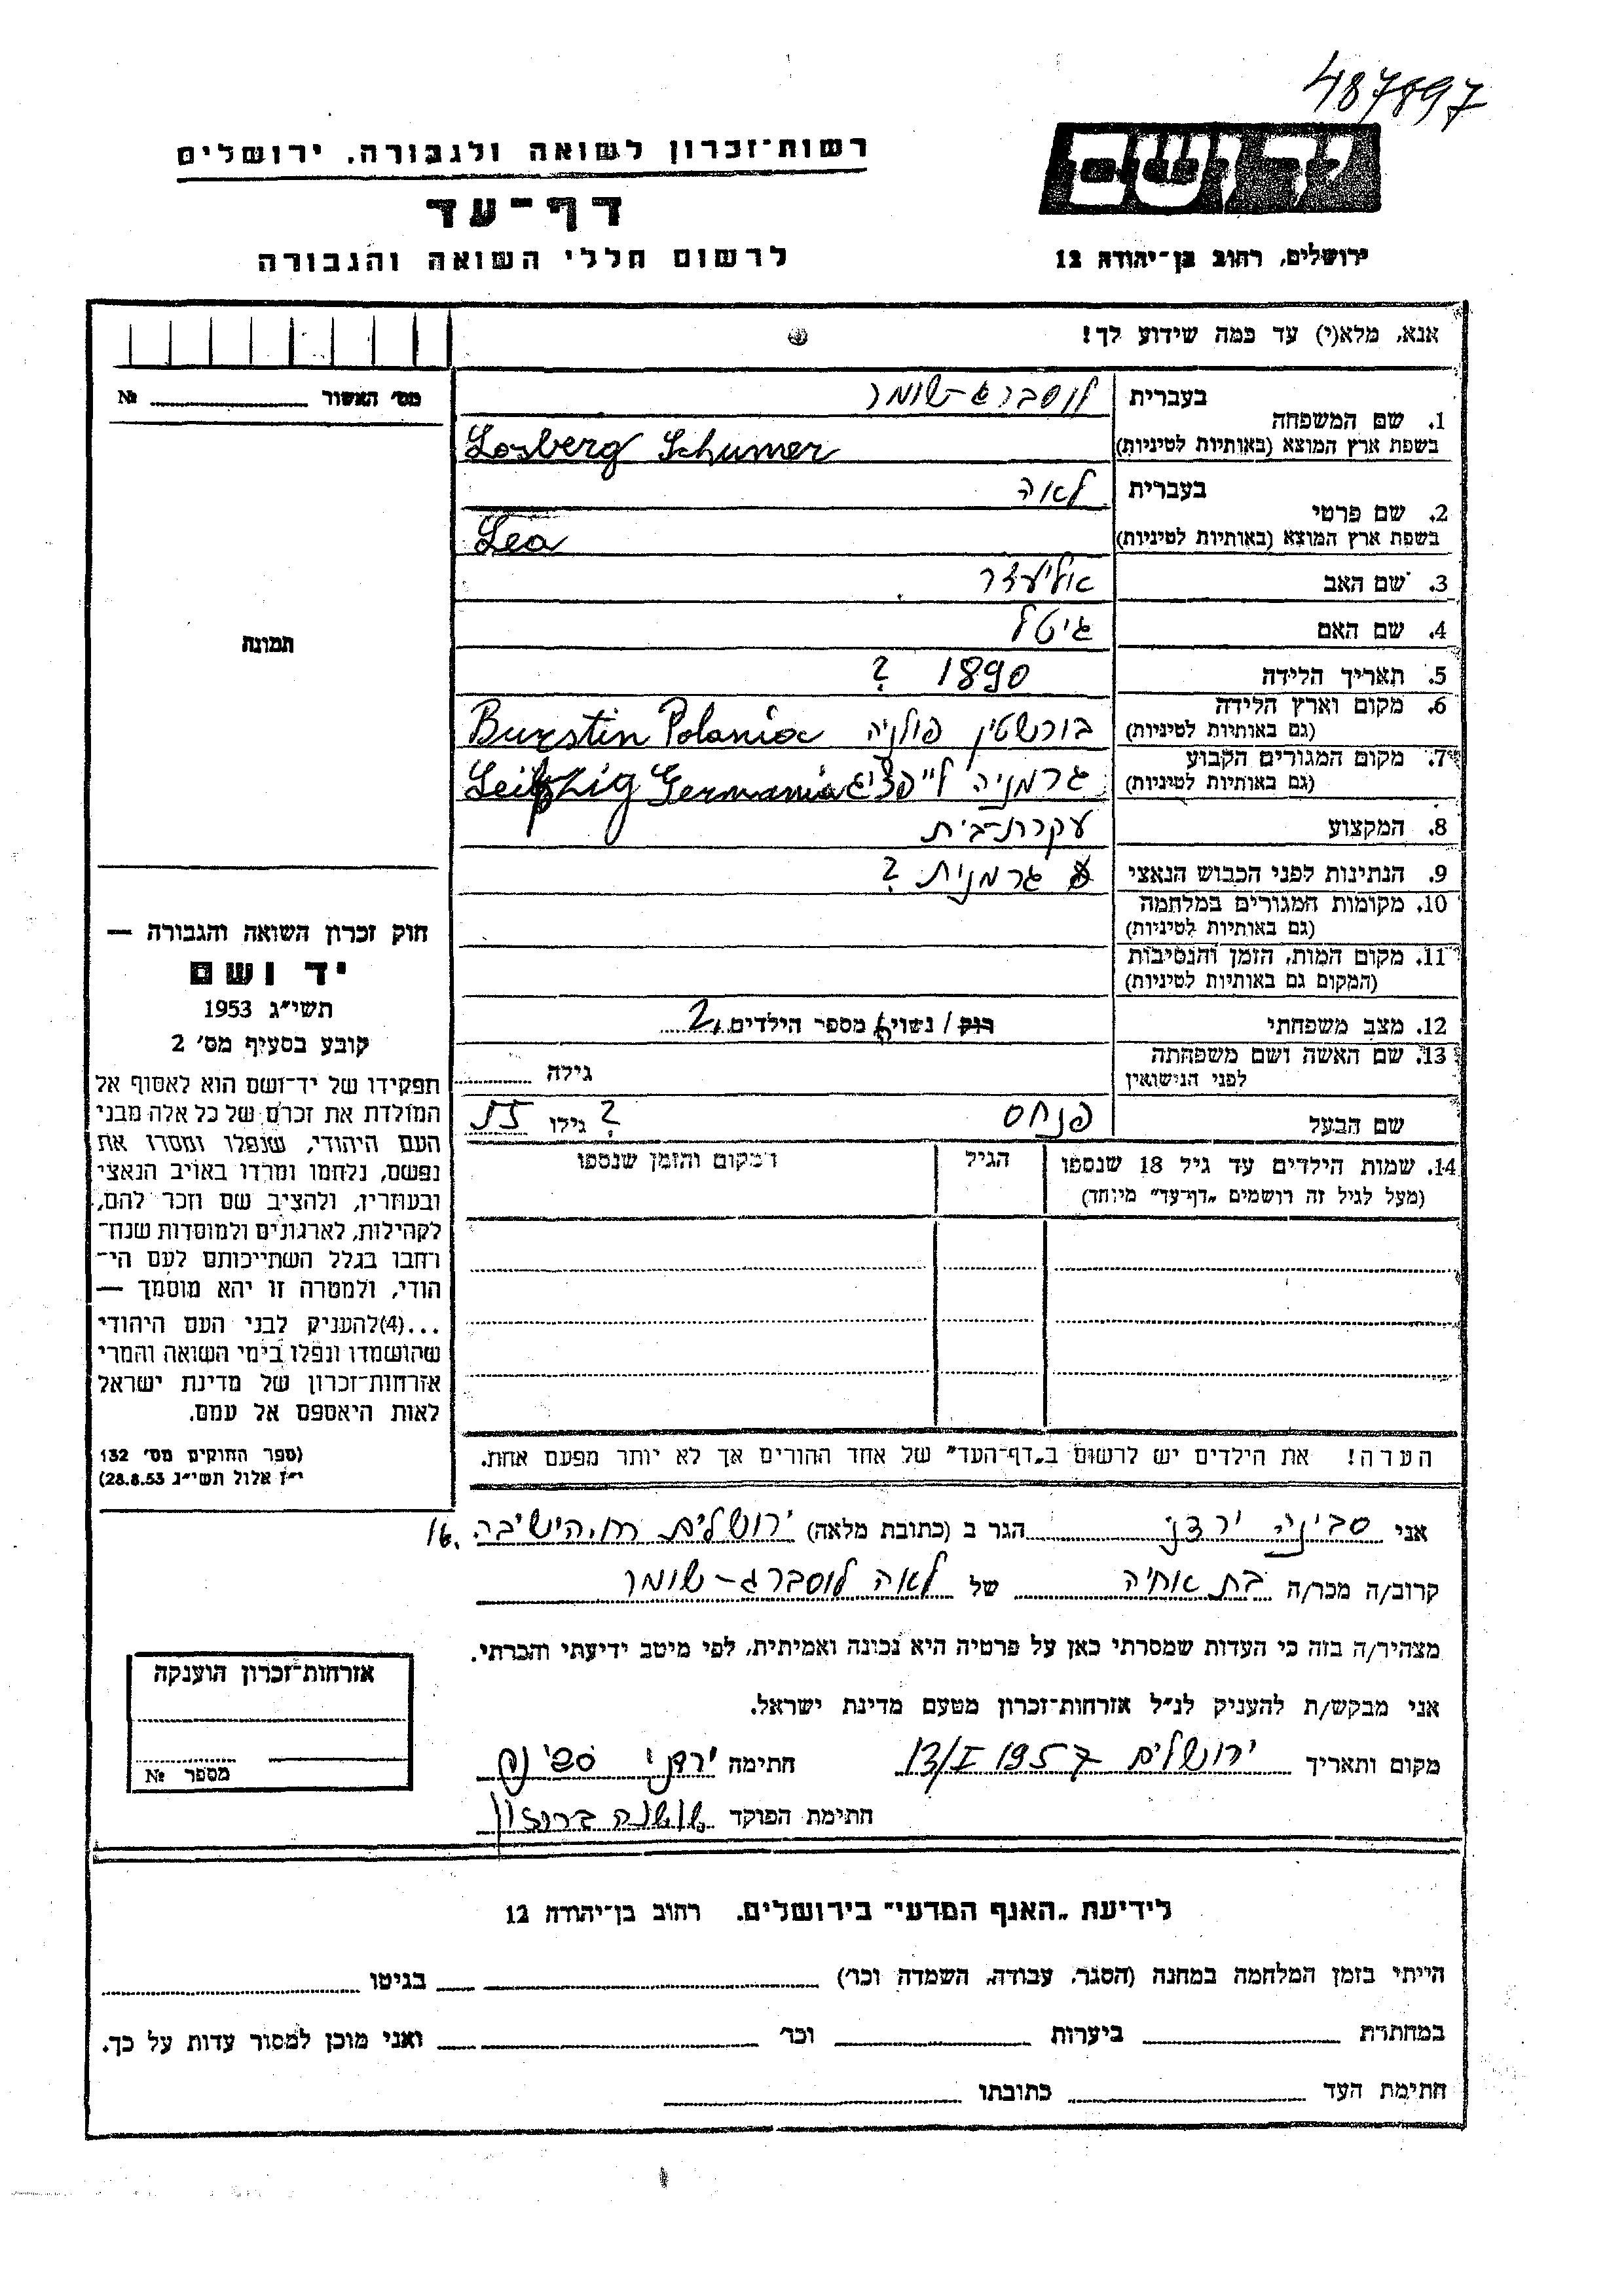 487897
רשות־זכרון לשואה ולגבורה. ירושלים
יד ושם
דף־עד
לרשום חללי השואה והגבורה
ירושלים, רחוב בן־יהודה 12
אנא, מלא(י) עד כמה שידוע לך!
מס׳ האשור № 
בעברית לוסברג-שומר
1. שם המשפחה
בשפת ארץ המוצא (באותיות לטיניות) Losberg Schumer
בעברית לאה
2. שם פרטי
בשפת ארץ המוצא (באותיות לטיניות) Lea
3. שם האב אליעזר
4. שם האם גיטל
תמונה
5. תאריך הלידה 1890 ?
6. מקום וארץ הלידה
(גם באותיות לטיניות) בורשטין פולניה Burstin Polania
7. מקום המגורים הקבוע
(גם באותיות לטיניות) גרמניה לייפציג Leipzig Germania
8. המקצוע עקרת-בית
9. הנתינות לפני הכבוש הנאצי גרמנית ?
10. מקומות המגורים במלחמה
(גם באותיות לטיניות)
11. מקום המות, הזמן והנסיבות
(המקום גם באותיות לטיניות)
12. מצב משפחתי רוק / נשוי/אה מספר הילדים 2
13. שם האשה ושם משפחתה
לפני הנישואין גילה
שם הבעל פנחס גילו 55 ?
14. שמות הילדים עד גיל 18 שנספו הגיל המקום והזמן שנספו
(מעל לגיל זה רושמים „דף־עד” מיוחד)
הערה! את הילדים יש לרשום ב„דף־העד” של אחד ההורים אך לא יותר מפעם אחת.
חוק זכרון השואה והגבורה —
יד ושם
תשי״ג 1953
קובע בסעיף מס׳ 2
תפקידו של יד־ושם הוא לאסוף אל
המולדת את זכרם של כל אלה מבני
העם היהודי, שנפלו ומסרו את
נפשם, נלחמו ומרדו באויב הנאצי
ובעוזריו, ולהציב שם וזכר להם,
לקהילות, לארגונים ולמוסדות שנח־
רחבו בגלל השתייכותם לעם הי־
הודי, ולמטרה זו יהא מוסמך —
...(4)להעניק לבני העם היהודי
שהושמדו ונפלו בימי השואה והמרי
אזרחות־זכרון של מדינת ישראל
לאות היאספם אל עמם.
(ספר החוקים מס׳ 132
י״ז אלול תשי״ג 28.8.53)
אני סבינה ירדני הגר ב (כתובת מלאה) ירושלים רח. הישיבה 16.
קרוב/ה מכר/ה בת אחיה של לאה לוסברג-שומר
מצהיר/ה בזה כי העדות שמסרתי כאן על פרטיה היא נכונה ואמיתית, לפי מיטב ידיעתי והכרתי.
אני מבקש/ת להעניק לנ״ל אזרחות־זכרון מטעם מדינת ישראל.
מקום ותאריך ירושלים 13/I 1957 חתימה ירדני סבינה
חתימת הפוקד שושנה
אזרחות־זכרון הוענקה
מספר №
לידיעת „האגף המדעי” בירושלים. רחוב בן־יהודה 12
הייתי בזמן המלחמה במחנה (הסגר, עבודה, השמדה וכו׳) בגיטו
במחתרת ביערות וכו׳ ואני מוכן למסור עדות על כך.
חתימת העד כתובתו